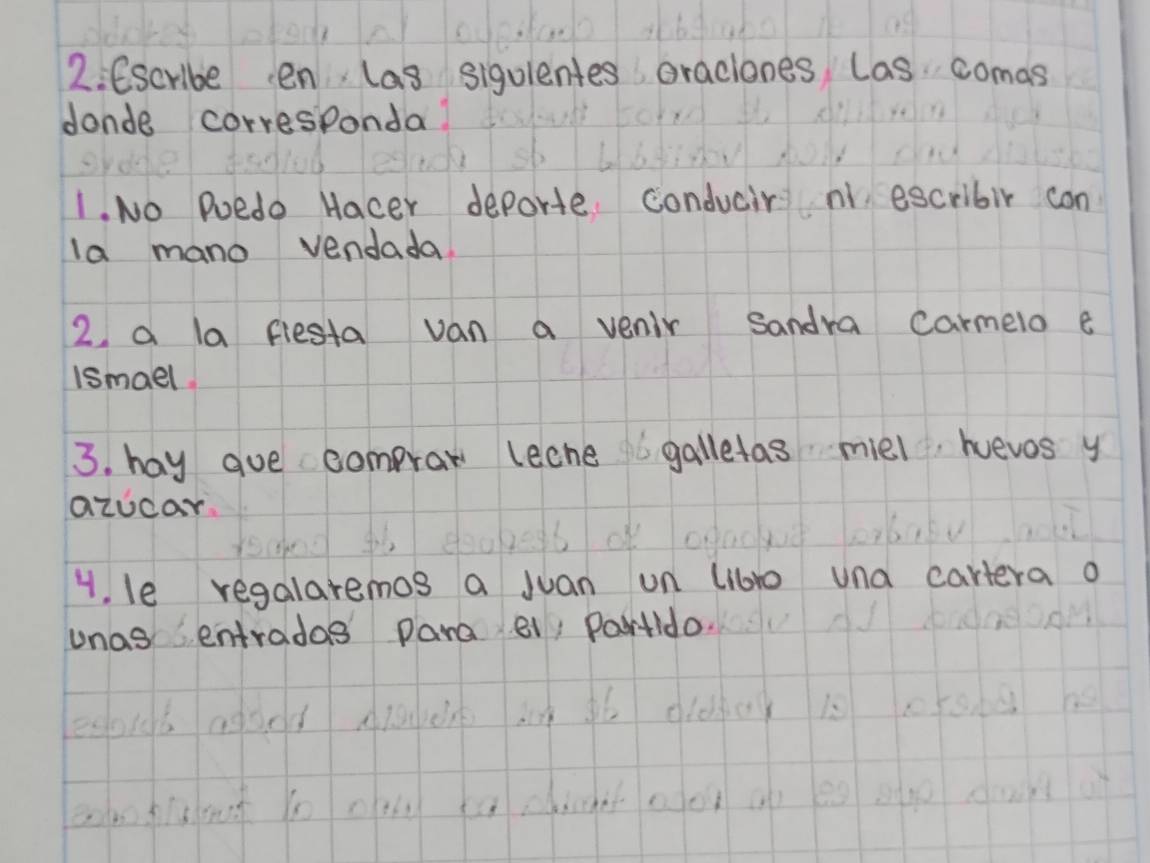 2. Escribe en las siguientes oraciones, las comas
donde corresponda:
1. No puedo Hacer deporte, conducir ni escribir con
la mano vendada.
2. a la fiesta van a venir Sandra Carmelo e
Ismael.
3. hay que comprar leche galletas miel huevos y
azúcar.
4. le regalaremos a Juan un libro una cartera o
unas entradas para el partido.